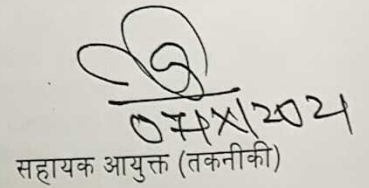 07/X/2021
सहायक आयुक्त (तकनीकी)